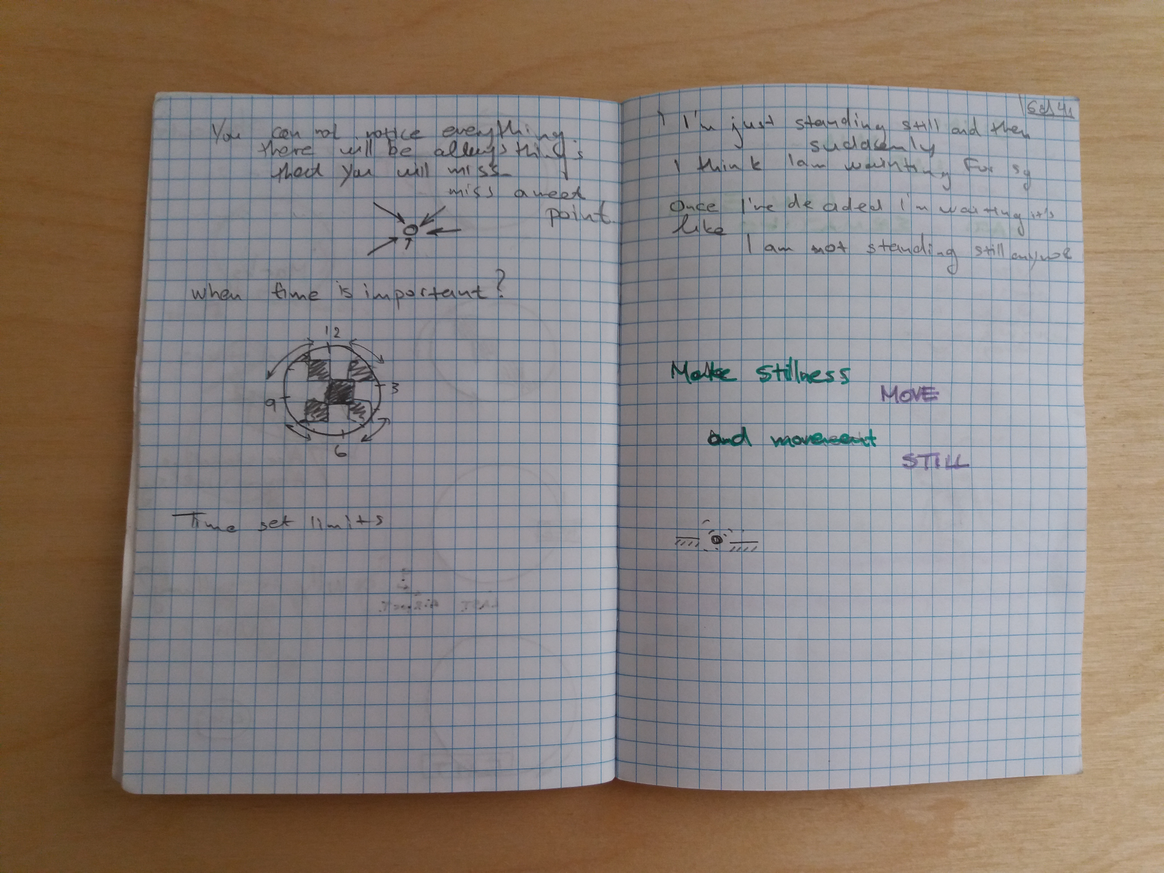 You can not notice everything.
there will be allways things
that you will miss
miss a meet
point.
when time is important?
12
3
9
6
Time set limits
I'm just standing still and then
suddenly
I think I am wainting For sg
Once I've decided I'm waiting it's
like
I am not standing still anymore
Make stillness
MOVE
and movement
STILL